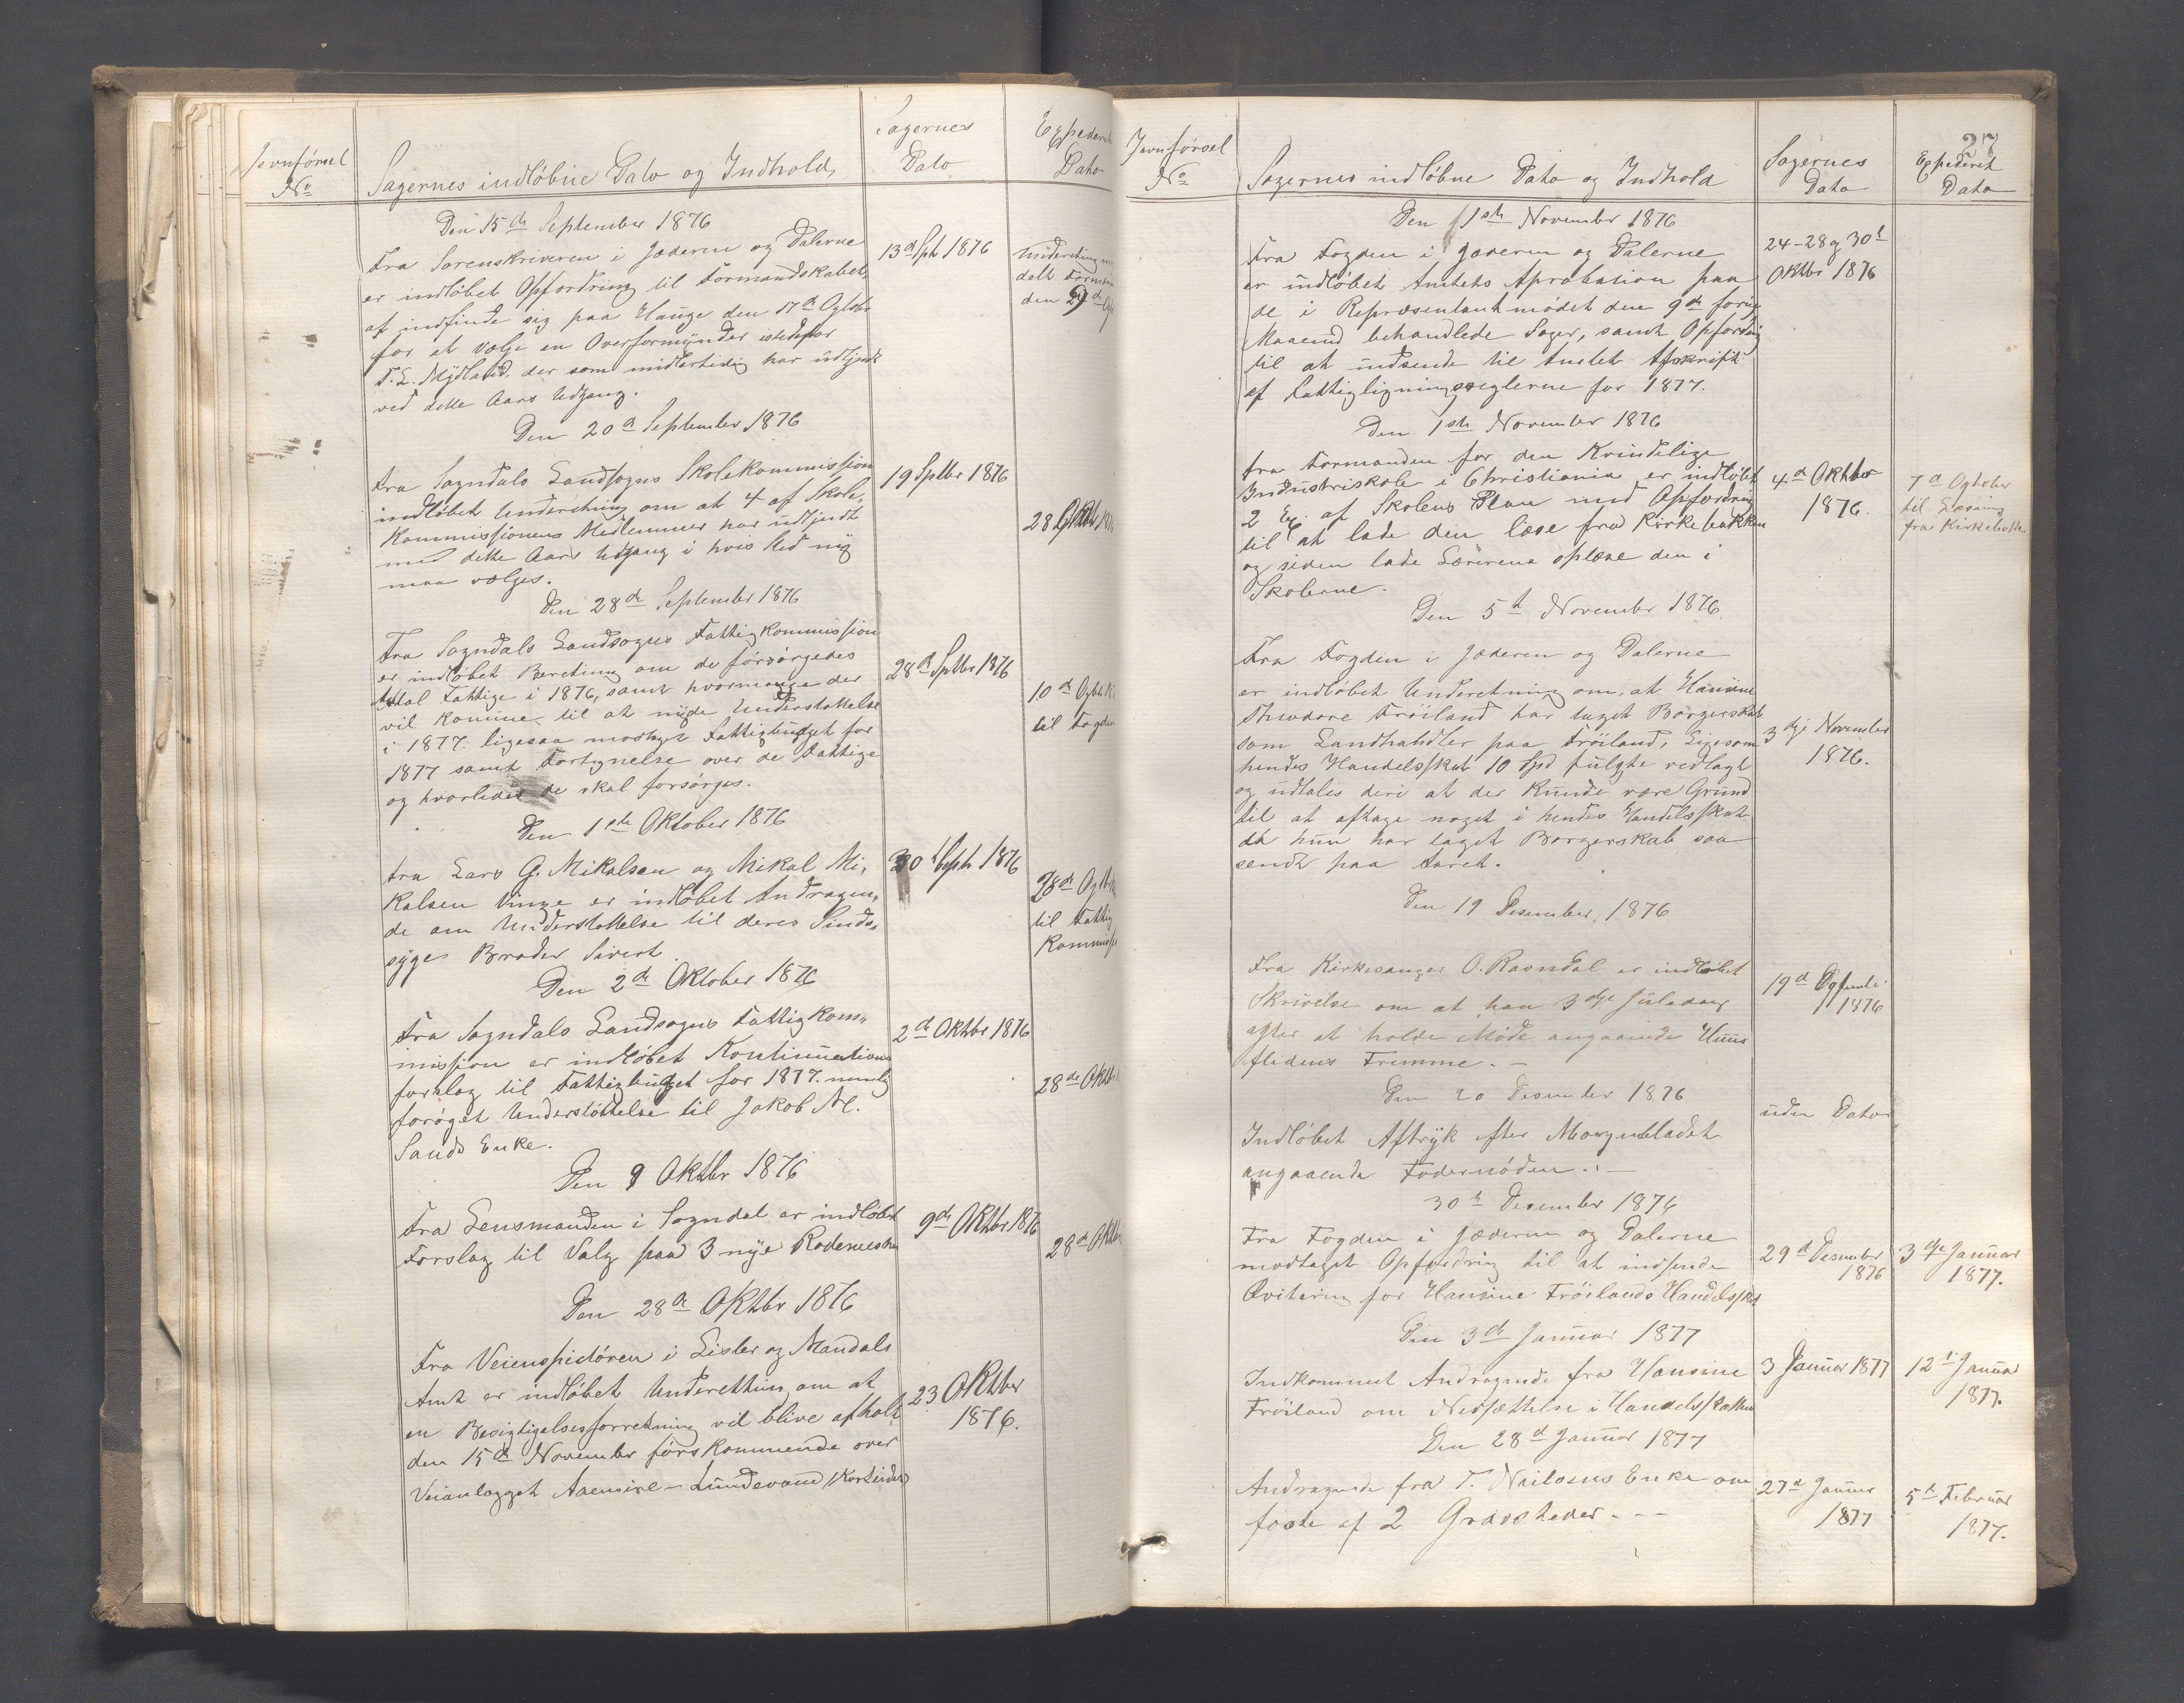 Jevnførsel
No
Sagernes indløbne Dato og Indhold
Sagernes
Dato
Expederet
Dato
Den 15de September 1876
Fra Sorenskriveren i Jæderen og Dalerne
er indløbet Opfordring til Formandskabet
af indfinde sig paa Hauge den 17de Ogtober
for at vælge en Overformynder istedetfor
T. L. Mydland, der som midlertidig har udtjent
ved dette Aars Udgang.
13de Spt 1876
Den 20de September 1876
Fra Sogndals Landsogns Skolekommission
indløbet Underetning om at 4 af Skole-
Kommissionens Medlemmer har udtjendt
med dette Aars Udgang i hvis Sted ny
maa vælges.
19 Sptbr 1876
Den 28de September 1876
Fra Sogndals Landsogns Fattigkommission
er indløbet Beretning om de forsørgedes
Antal Fattige i 1876, samt hvormange der
vil komme til at nyde Understøttelse
i 1877. ligesaa modtaget Fattigbudget for
1877 samt Fortegnelse over de Fattige
og hvorledes de skal forsørges.
28de Sptbr 1876
10de Ogtb
til Fogden
Den 1ste Oktober 1876
Fra Lars G. Mikalsen og Mikal Mi-
kalsen Vinge er indløbet Andragen-
de om Understøttelse til deres Sinds-
syge Broder Sivert
30 Septr 1876
28de Ogtb
til Fattig
Kommiss
Den 2de Oktober 1876
Fra Sogndals Landsogns Fattigkom-
mission er indløbet Kontinuations
forslag til Fattigbudget for 1877. nemlig
forøget Understøttelse til Jakob M.
Sands Enke.
2de Oktbr 1876
28de Oktb
Den 9 Oktbr 1876
Fra Lensmanden i Sogndal er indløbet
Forslag til Valg paa 3 nye Rodemestre
9de Oktbr 1876
28de Oktb
Den 28de Oktbr 1876
Fra Veiinspektøren i Lister og Mandals
Amt er indløbet Underettning om at
en Besigtigelsesforretning vil blive afholt
den 15de November førskommende over
Veianlægget Aaensire - Lundevand
23 Oktber
1876.
27
Jevnførsel
No
Sagernes indløbne Dato og Indhold
Sagernes
Dato
Expederet
Dato
Den 1ste November 1876
Fra Fogden i Jæderen og Dalerne
er indløbet Amtets Aprobation paa
de i Repræsentantmødet den 9de forrige
Maaned behandlede Sager, samt Opfordring
til at indsende til Amtet Afskrift
af Fattigligningsreglerne for 1877.
24-28 og 30te
Oktbr 1876
Den 1ste November 1876
Fra Formanden for den Kvindelige
Industriskole i Christiania er indløbet
2 Ex. af Skolens Plan med Opfordring
til at lade den læse fra Kirkebakken
og siden lade Lærerene oplæse den i
Skolerne.
4de Oktber
1876.
7de Ogtober
til Læsning
fra Kirkebakk
Den 5te November 1876
Fra Fogden i Jæderen og Dalerne
er indløbet Underetning om, at Hansine
Theodore Frøiland har taget Borgerskab
som Landhandler paa Frøiland, Ligesom
hendes Handelsskat 10 Spd fulgte vedlagt
og udtales deri at der kunde være Grund
til at aftage noget i hendes Handelsskat
da hun har taget Borgerskab saa
sendt paa Aaret.
3dje November
1876.
Den 19 Desember 1876
Fra Kirkesanger O. Ravndal er indløbet
Skrivelse om at han 3dje Juledag
agter at holde Møde angaaende Huus
flidens Fremme. -
19de
1876
Den 20 Desember 1876
Indløbet Aftryk efter Morgenbladet
angaaende Fodernøden. -
uden Dato
30te Desember 1876
Fra Fogden i Jæderen og Dalerne
modtaget Opfordring til at indsende
Qvitering for Hansine Frøilands Handelsskat
29de Desember
1876
3dje Januar
1877.
Den 3de Januar 1877
Indkommet Andragende fra Hansine
Frøiland om Nedsættelse i Handelsskatten
3 Januar 1877
12te Januar
1877.
Den 28de Januar 1877
Andragende fra T. Nielsens Enke om
feste af 2 Gravsteder. - -
27de Januar
1877
5te Februar
1877.